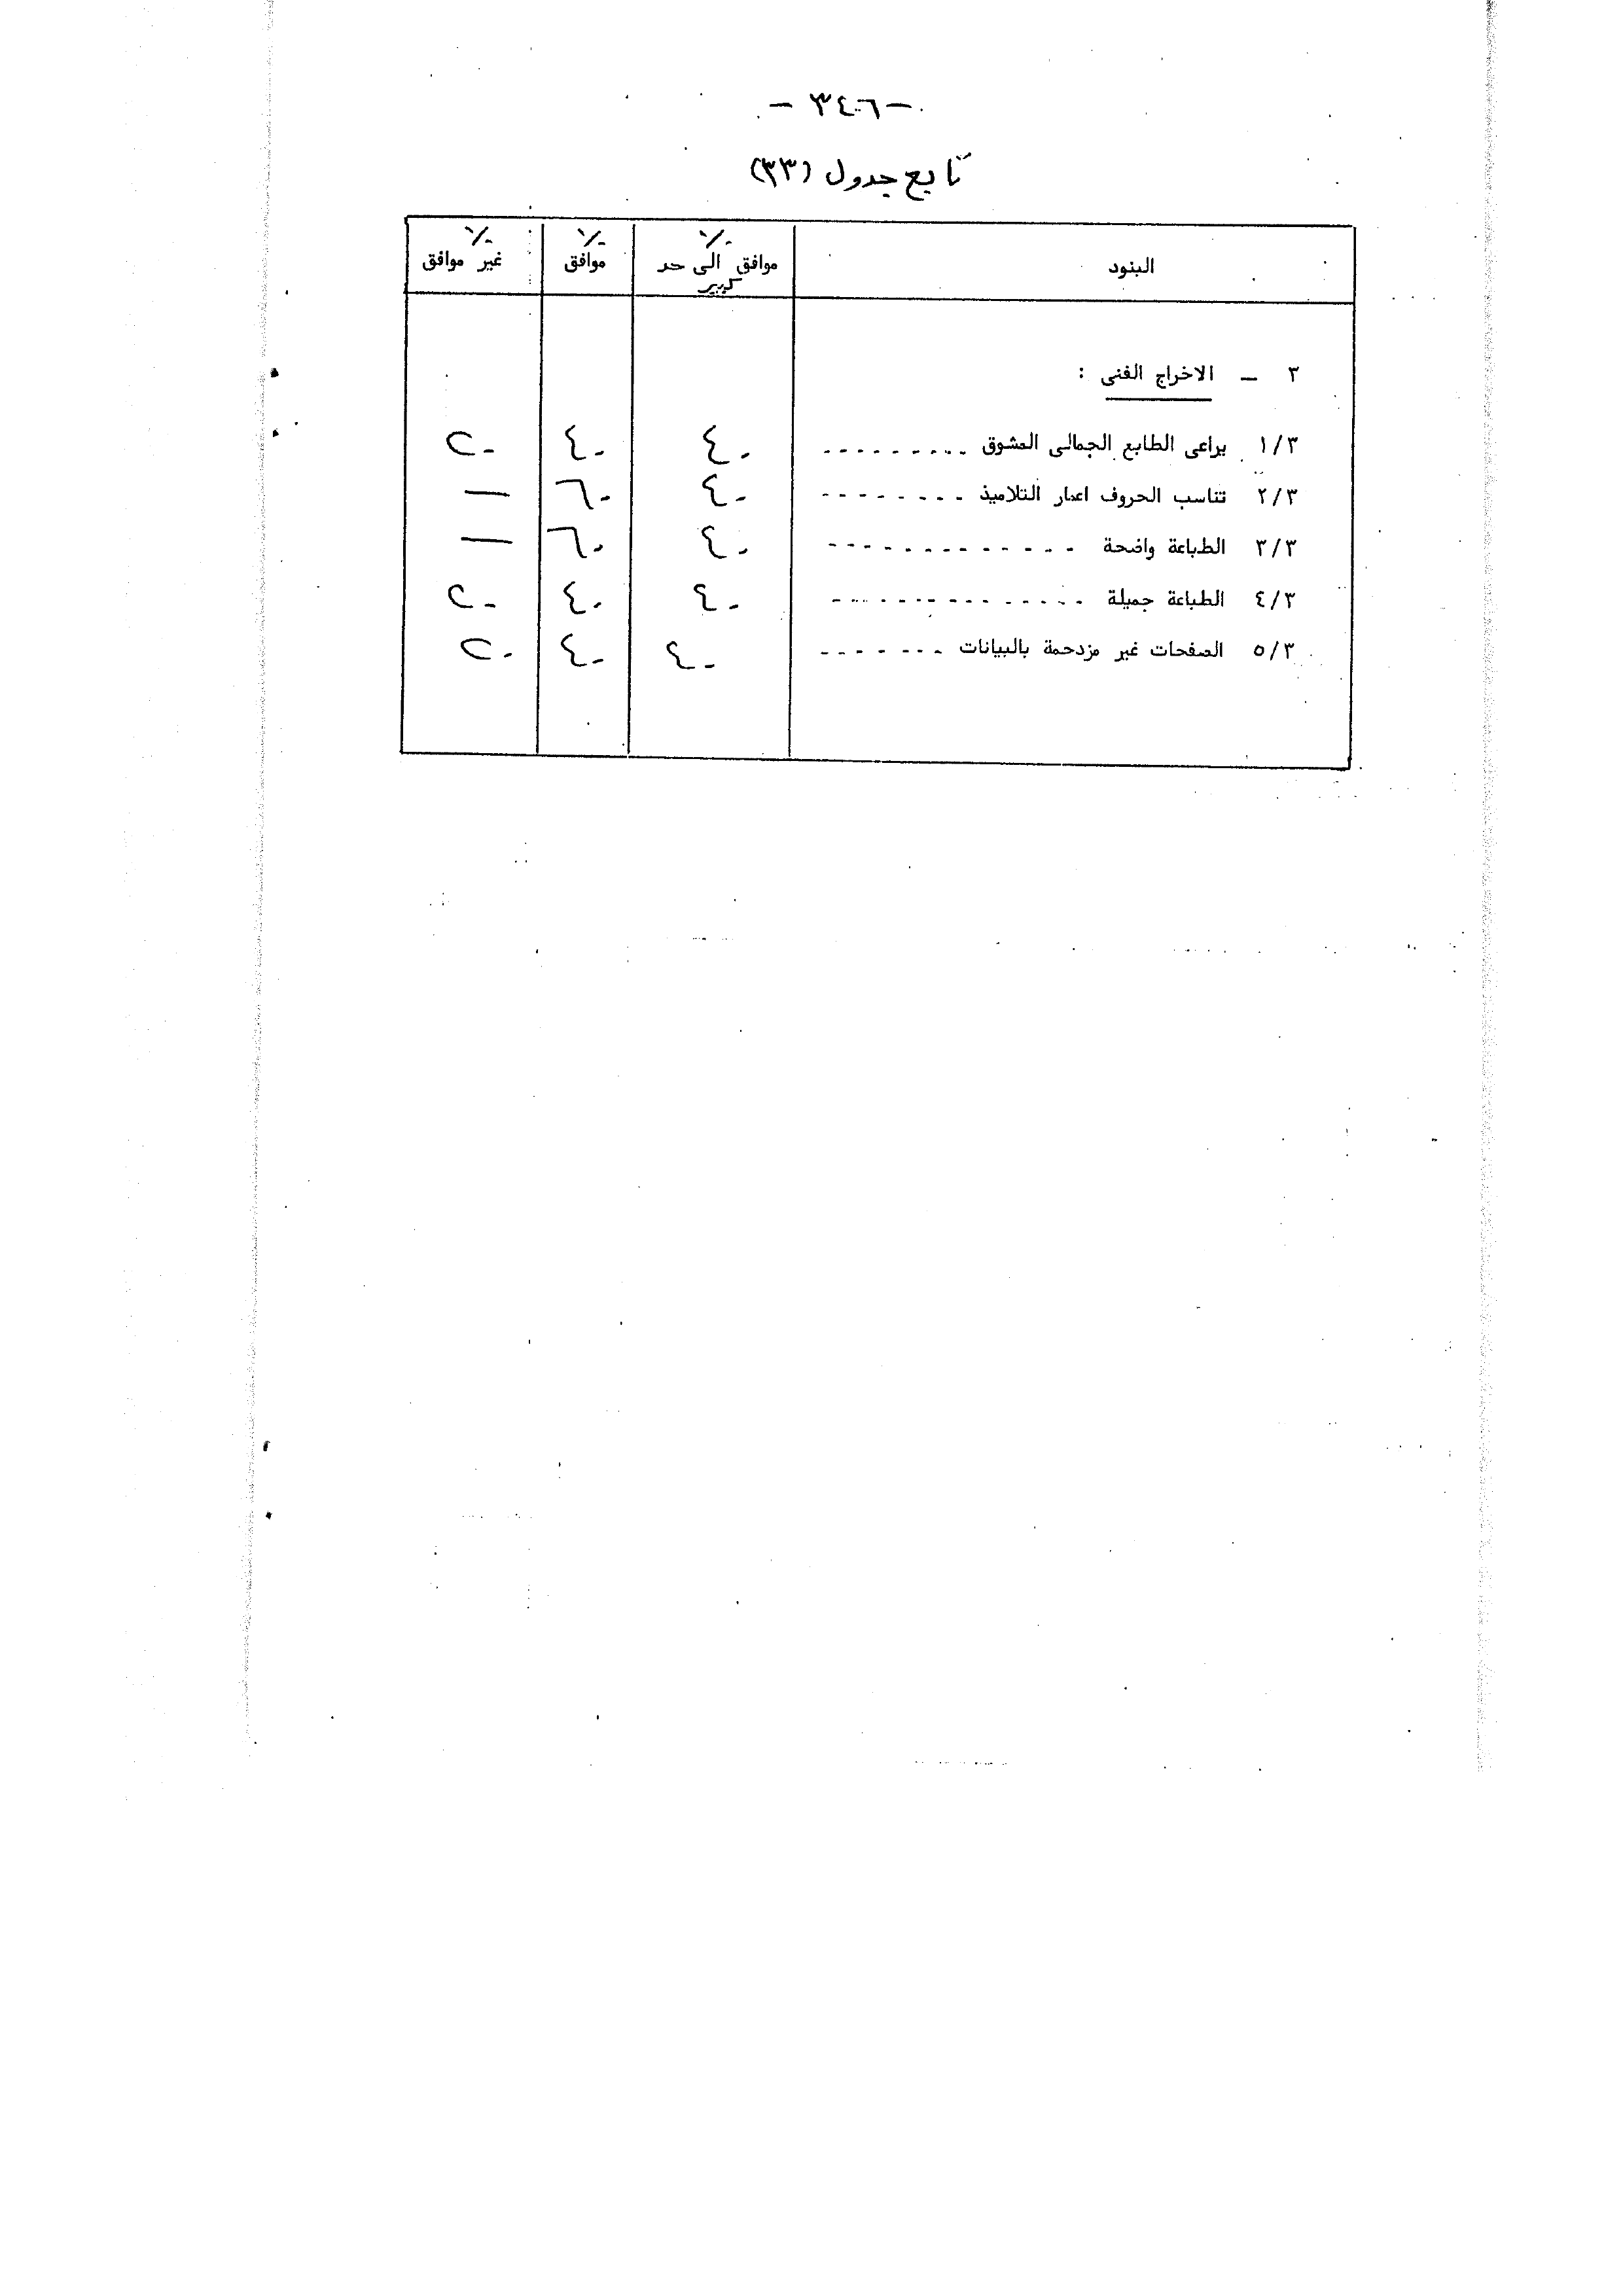 - ٣٤٦ -
تابع جدول (٣٣)
البنود | ٪ موافق الى حد كبير | ٪ موافق | ٪ غير موافق
٣ - الاخراج الفنى :
١/٣ يراعى الطابع الجمالى المشوق --------- ٤٠ ٤٠ ٢٠
٢/٣ تناسب الحروف اعمار التلاميذ -------- ٤٠ ٦٠ —
٣/٣ الطباعة واضحة ------------- ٤٠ ٦٠ —
٤/٣ الطباعة جميلة -------------- ٤٠ ٤٠ ٢٠
٥/٣ الصفحات غير مزدحمة بالبيانات ------- ٤٠ ٤٠ ٢٠